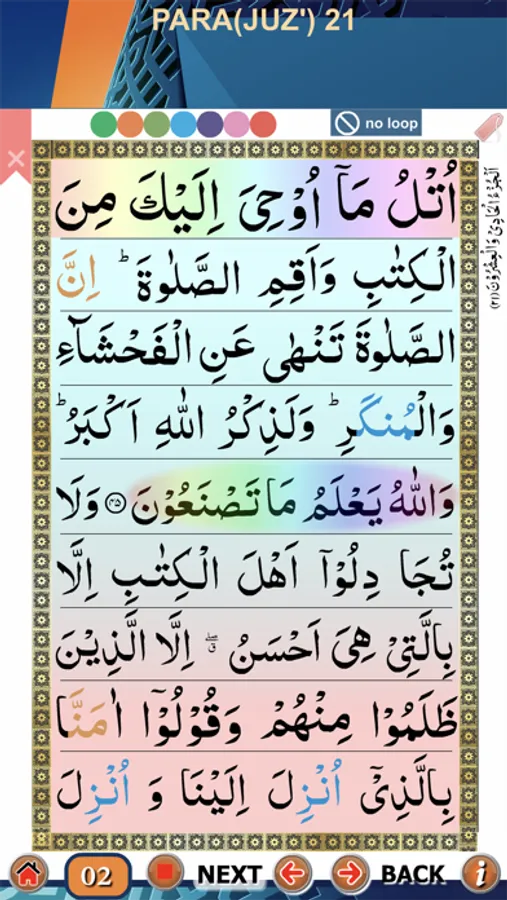 PARA(JUZ') 21
no loop
اُتْلُ مَاۤ اُوْحِیَ اِلَیْكَ مِنَ
الْكِتٰبِ وَاَقِمِ الصَّلٰوةَ ؕ اِنَّ
الصَّلٰوةَ تَنْهٰی عَنِ الْفَحْشَآءِ
وَالْمُنكَرِ ؕ وَلَذِكْرُ اللّٰهِ اَكْبَرُ ؕ
وَاللّٰهُ یَعْلَمُ مَا تَصْنَعُوْنَ ﴿۴۵﴾ وَلَا
تُجَا دِلُوْۤا اَهْلَ الْكِتٰبِ اِلَّا
بِالَّتِیْ هِیَ اَحْسَنُ ۖق اِلَّا الَّذِیْنَ
ظَلَمُوْا مِنْهُمْ وَقُوْلُوْۤا اٰمَنَّا
بِالَّذِیْۤ اُنْزِلَ اِلَیْنَا وَ اُنْزِلَ
اَلْجُزْءُ الْحَادِیْ وَالْعِشْرُوْنَ (۲۱)
02 NEXT BACK i